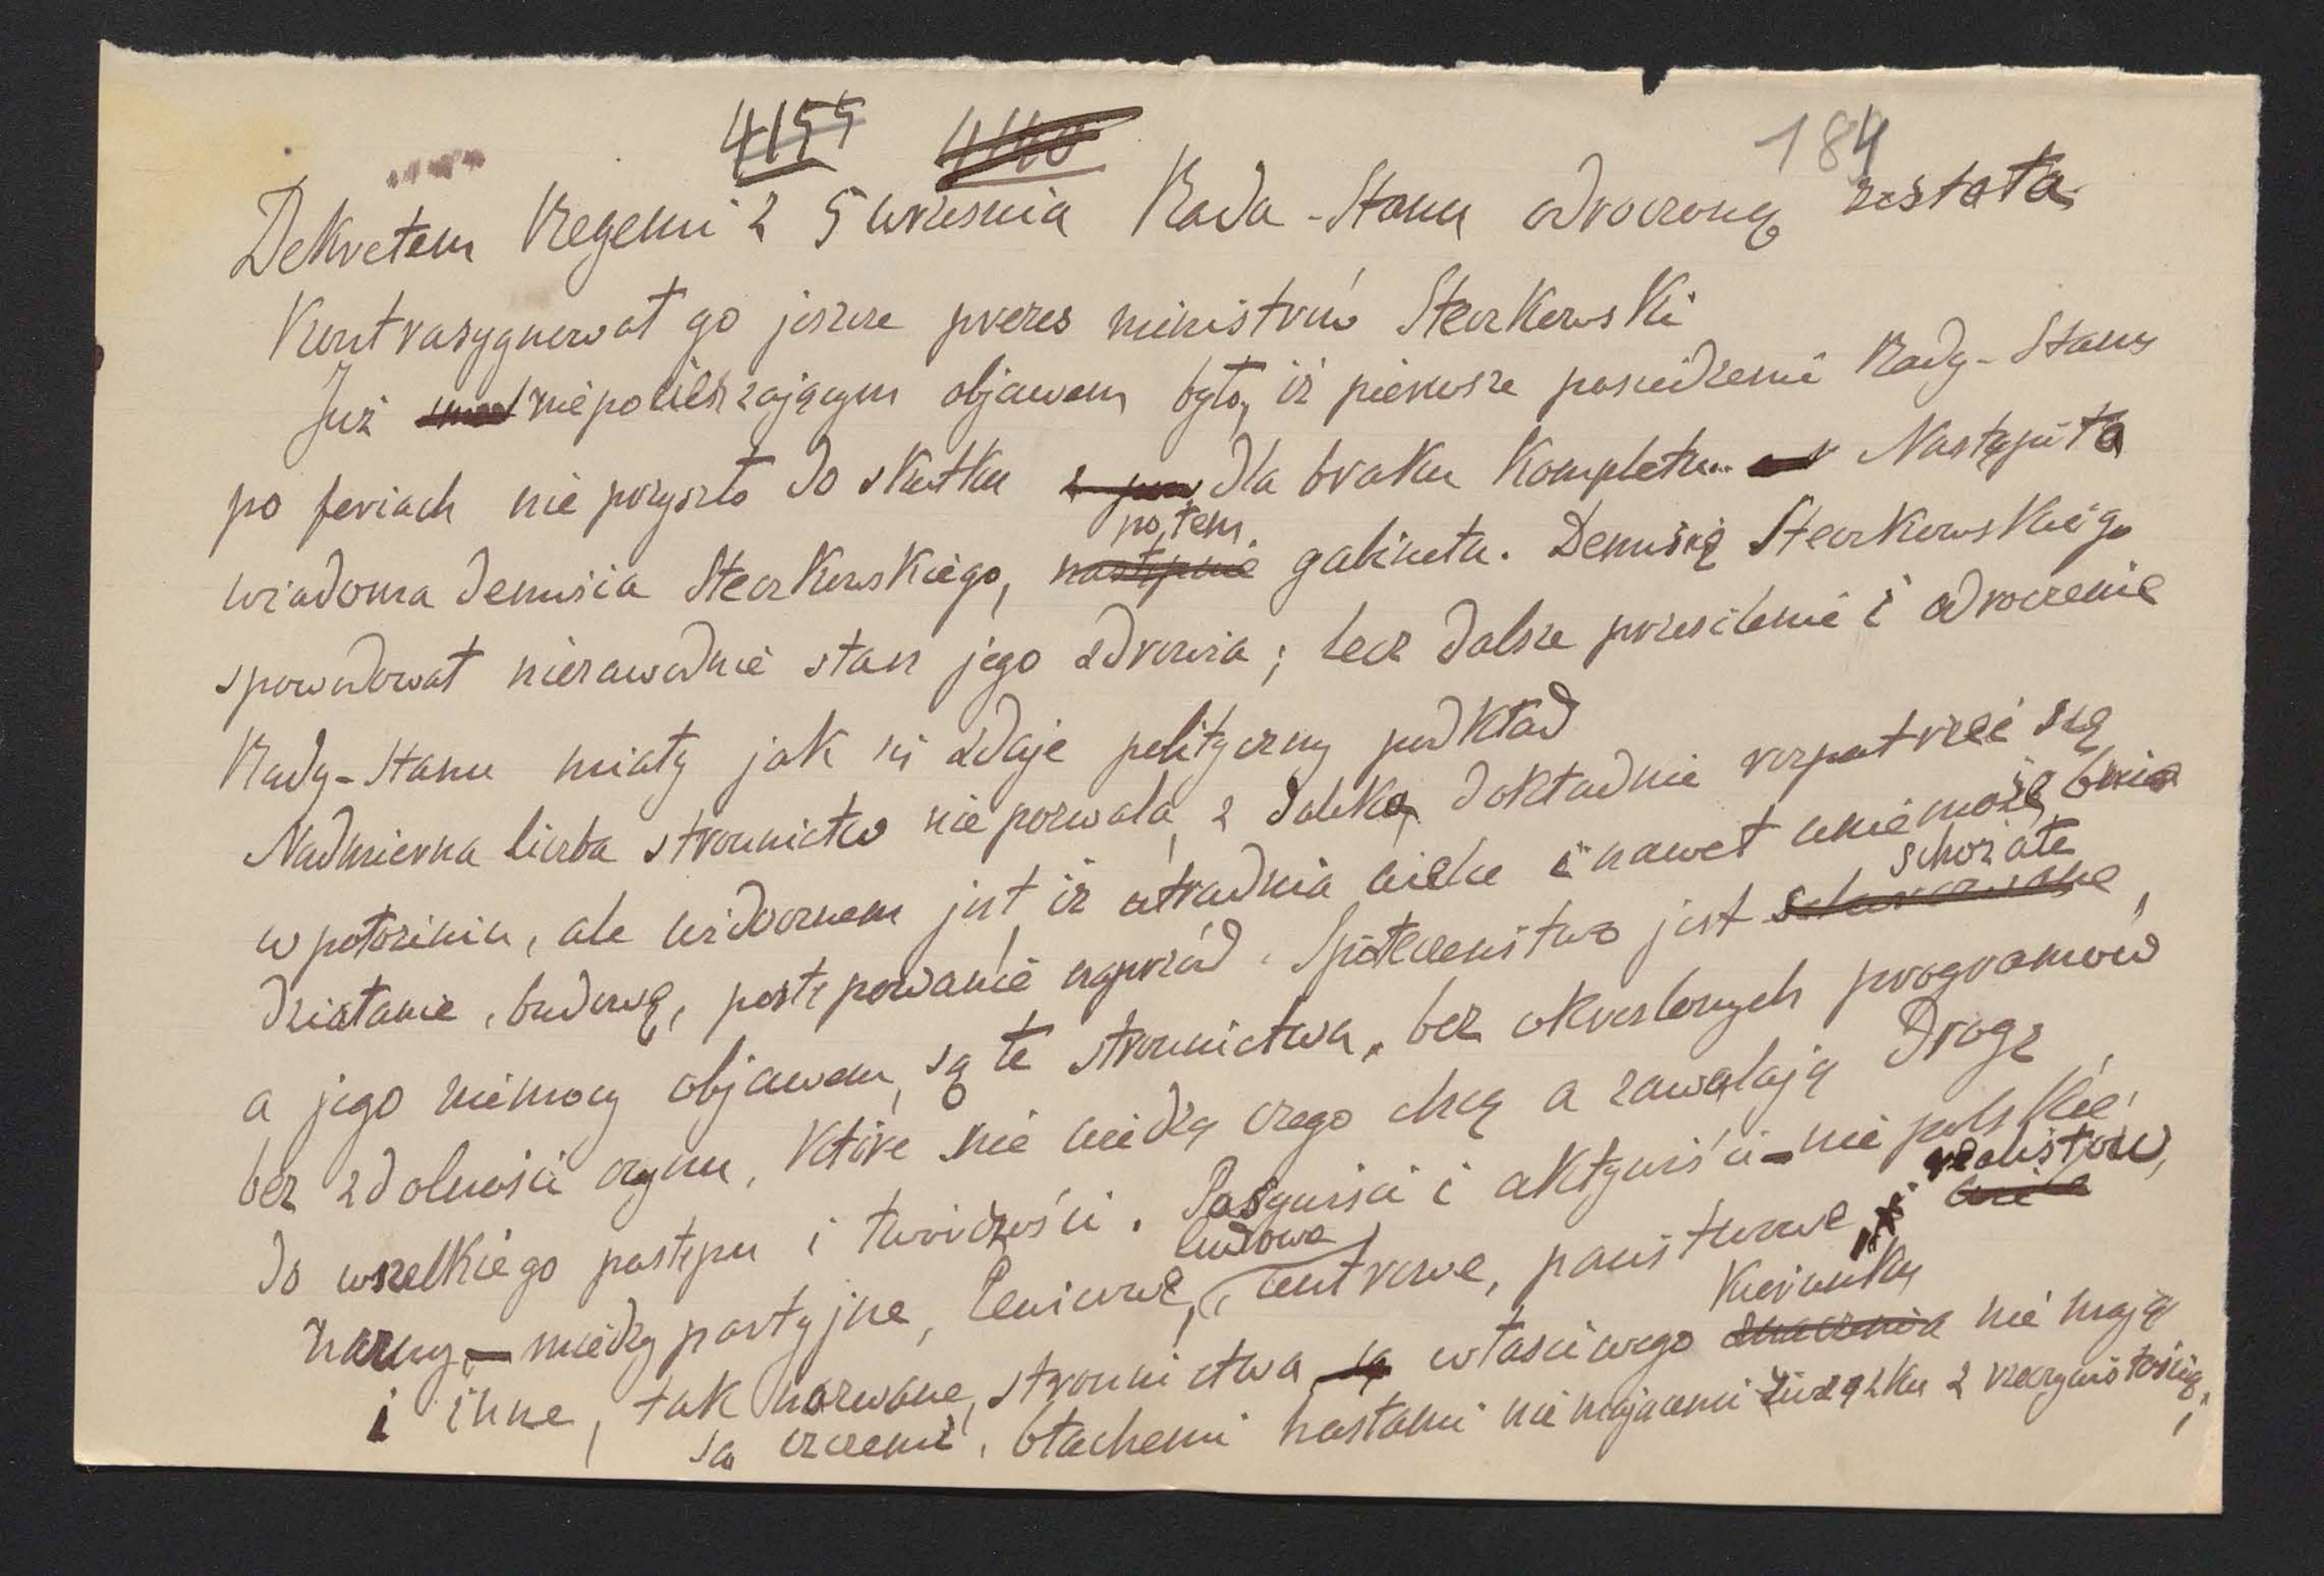 4155 4140 184
Dekretem Regenci z 5 września Rada-Stanu odroczoną została
Kontrasygnował go jeszcze prezes ministrów Steczkowski
Już niepocieszającym objawem było, iż pierwsze posiedzenie Rady-Stanu
po feriach nie przyszło do skutku dla braku kompletu... Nastąpiła
potem
wiadoma demisia Steczkowskiego, następnie gabinetu. Demisię Steczkowskiego
spowodował niezawodnie stan jego zdrowia; lecz dalsze przesilenie i odroczenie
Rady-Stanu miały jak się zdaje polityczny podkład
Nadmierna liczba stronnictw nie pozwala z daleka, dokładnie rozpatrzeć się
w położeniu, ale widocznem jest, iż utrudnia wielce i nawet uniemożebnia
schorzałe
działanie, budowę, postępowanie naprzód. Społeczeństwo jest,
a jego niemocy objawem, są te stronnictwa, bez określonych programów
bez zdolności czynu, które nie wiedzą czego chcą a zawalają drogę
do wszelkiego postępu i twórczości. Pasywiści i aktywiści – nie polskie,
ludowe realistów,
nazwy – między partyjne, lewicowe, centrowe, państwowe, i
kierunku
i inne, tak nazwane, stronnictwa są właściwego znaczenia nie mają
są czczemi, błachemi hasłami nie mającemi związku z rzeczywistością;